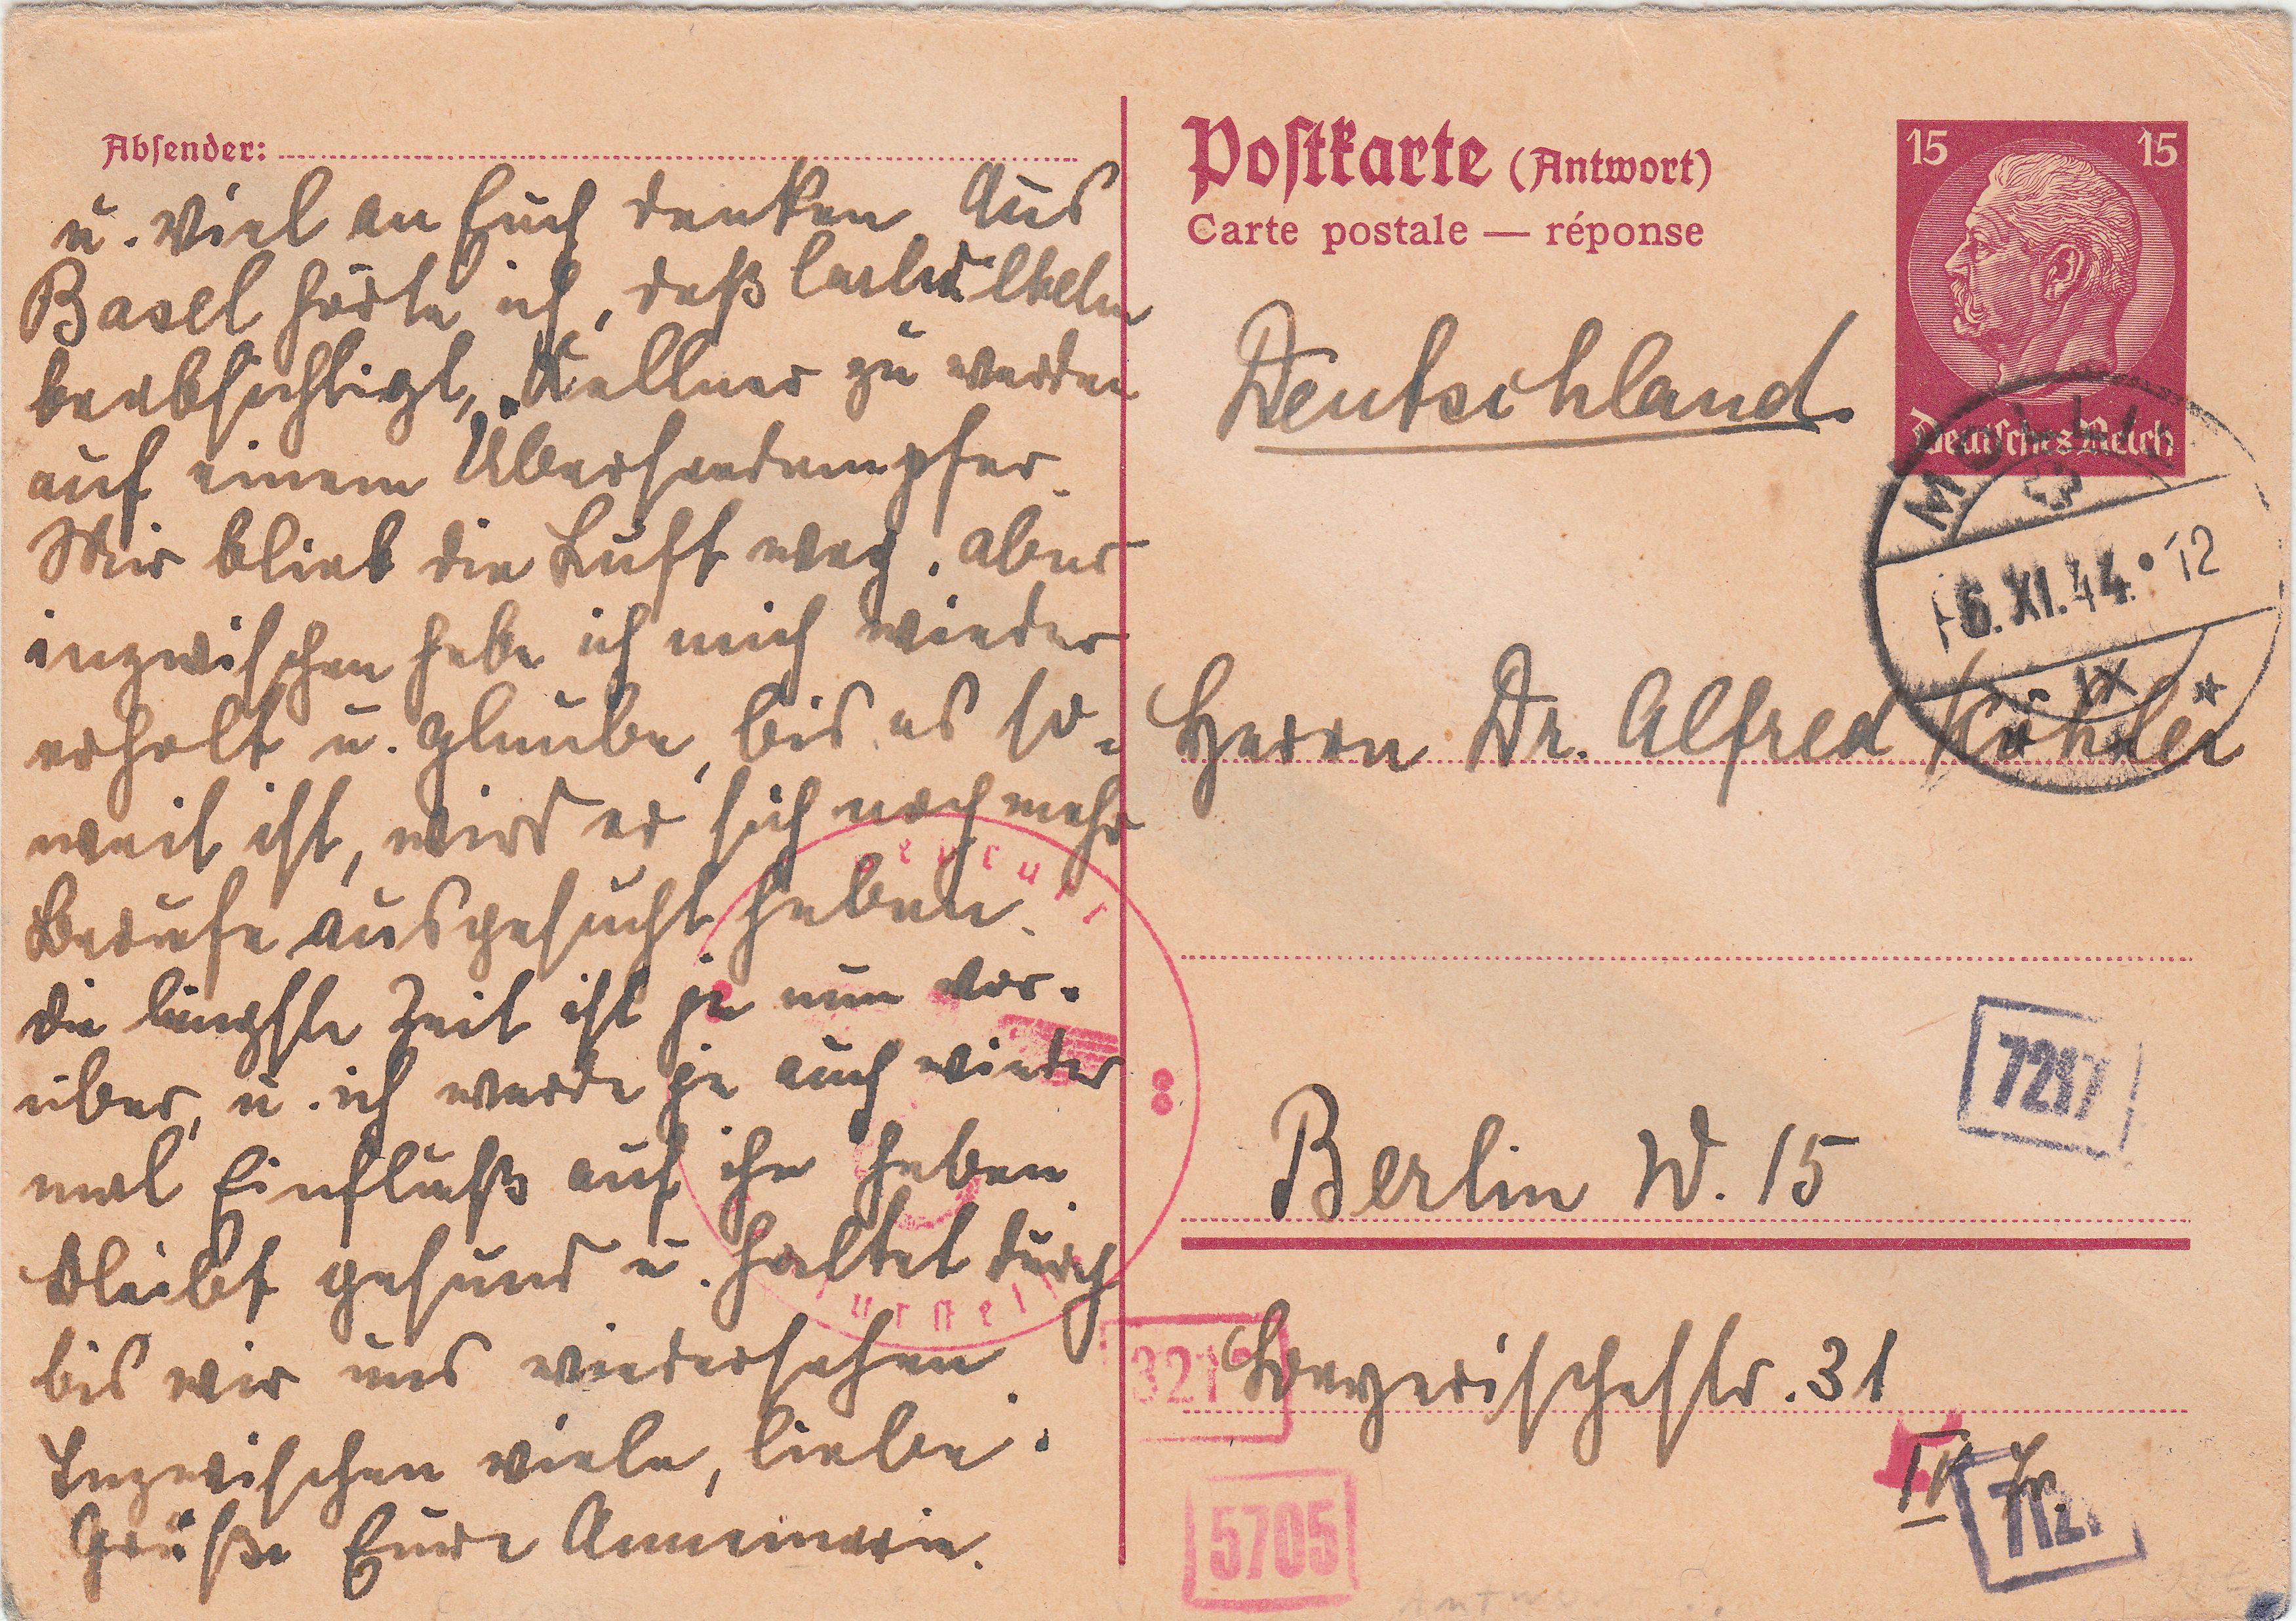 Absender:
u. viel an Euch denken Aus
Basel hörte ich, daß Carlwilhelm
beabsichtigt, Kellner zu werden
auf einem Überseedampfer.
Mir blieb die Luft weg. Aber
inzwischen habe ich mich wieder
erholt u. glaube, bis es so-
weit ist, wird er sich noch mehr
Berufe ausgesucht haben.
Die längste Zeit ist ja nun vor-
über, u. ich werde ja auch wieder
mal Einfluß auf ihn haben.
Bleibt gesund u. haltet durch
bis wir uns wiedersehen.
Inzwischen viele, liebe
Grüße Eure Annemarie.
Postkarte (Antwort)
Carte postale — réponse
15 15
Deutsches Reich
6.XI.44. 12
IX
Deutschland.
Herrn Dr. Alfred Köhler
7217
Berlin W. 15
Bayerischestr. 31
IV
321
5705
712